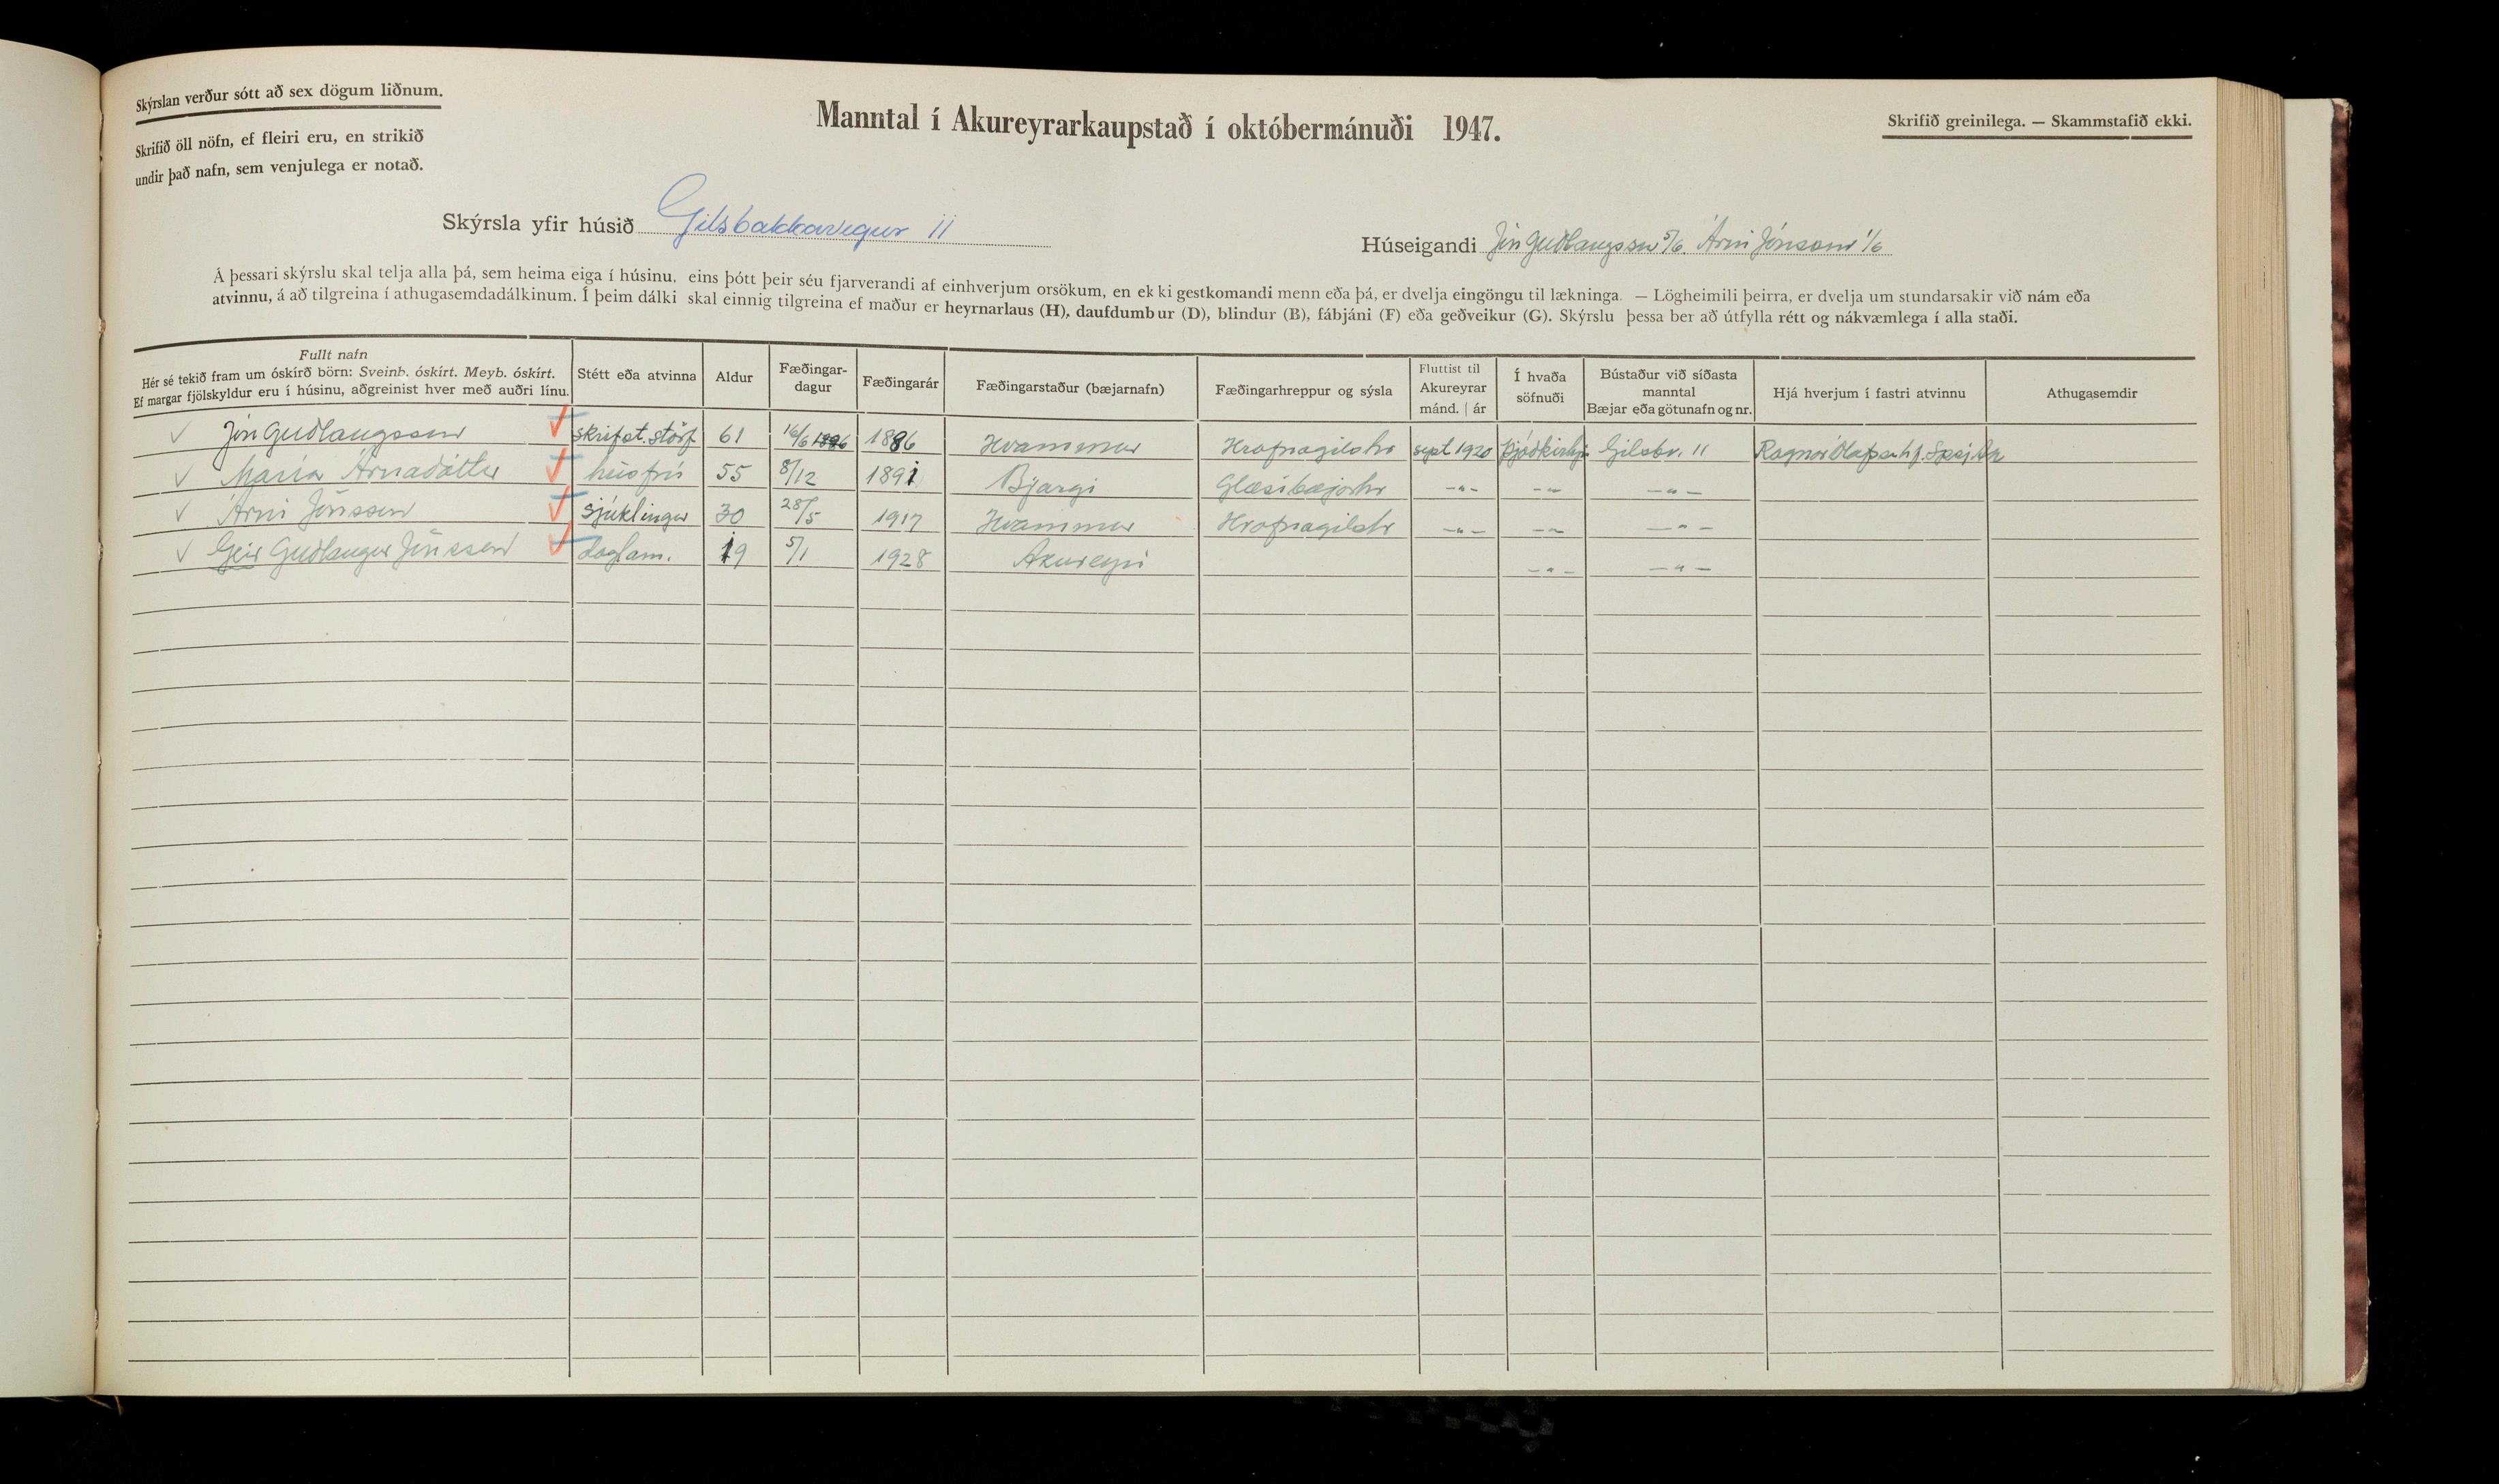 Skýrslan verður sótt að sex dögum liðnum.
Skrifið öll nöfn, ef fleiri eru, en strikið
undir það nafn, sem venjulega er notað.
Manntal í Akureyrarkaupstað í októbermánuði 1947.
Skrifið greinilega. — Skammstafið ekki.
Skýrsla yfir húsið Gilsbakkavegur 11
Húseigandi Jón Guðlaugsson 5/6. Árni Jónsson 1/6
Á þessari skýrslu skal telja alla þá, sem heima eiga í húsinu, eins þótt þeir séu fjarverandi af einhverjum orsökum, en ekki gestkomandi menn eða þá, er dvelja eingöngu til lækninga. — Lögheimili þeirra, er dvelja um stundarsakir við nám eða
atvinnu, á að tilgreina í athugasemdadálkinum. Í þeim dálki skal einnig tilgreina ef maður er heyrnarlaus (H), daufdumbur (D), blindur (B), fábjáni (F) eða geðveikur (G). Skýrslu þessa ber að útfylla rétt og nákvæmlega í alla staði.
Fullt nafn
Hér sé tekið fram um óskírð börn: Sveinb. óskírt. Meyb. óskírt.
Ef margar fjölskyldur eru í húsinu, aðgreinist hver með auðri línu.
Stétt eða atvinna
Aldur
Fæðingar-
dagur
Fæðingarár
Fæðingarstaður (bæjarnafn)
Fæðingarhreppur og sýsla
Fluttist til
Akureyrar
mánd. | ár
Í hvaða
söfnuði
Bústaður við síðasta
manntal
Bæjar eða götunafn og nr.
Hjá hverjum í fastri atvinnu
Athugasemdir
✓ Jón Guðlaugsson ✓ skrifst.störf 61 16/6 1886 1886 Hvammur Hrafnagilshr sept 1920 Þjóðkirkj. Gilsbv. 11 Ragnar Ólafsson h/f.
✓ María Árnadóttir ✓ húsfrú 55 8/12 1891 Bjargi Glæsibæjarhr -"- -"- -"-
✓ Árni Jónsson ✓ sjúklingur 30 28/5 1917 Hvammur Hrafnagilshr -"- -"- -"-
✓ Geir Guðlaugur Jónsson ✓ daglam. 19 5/1 1928 Akureyri -"- -"-